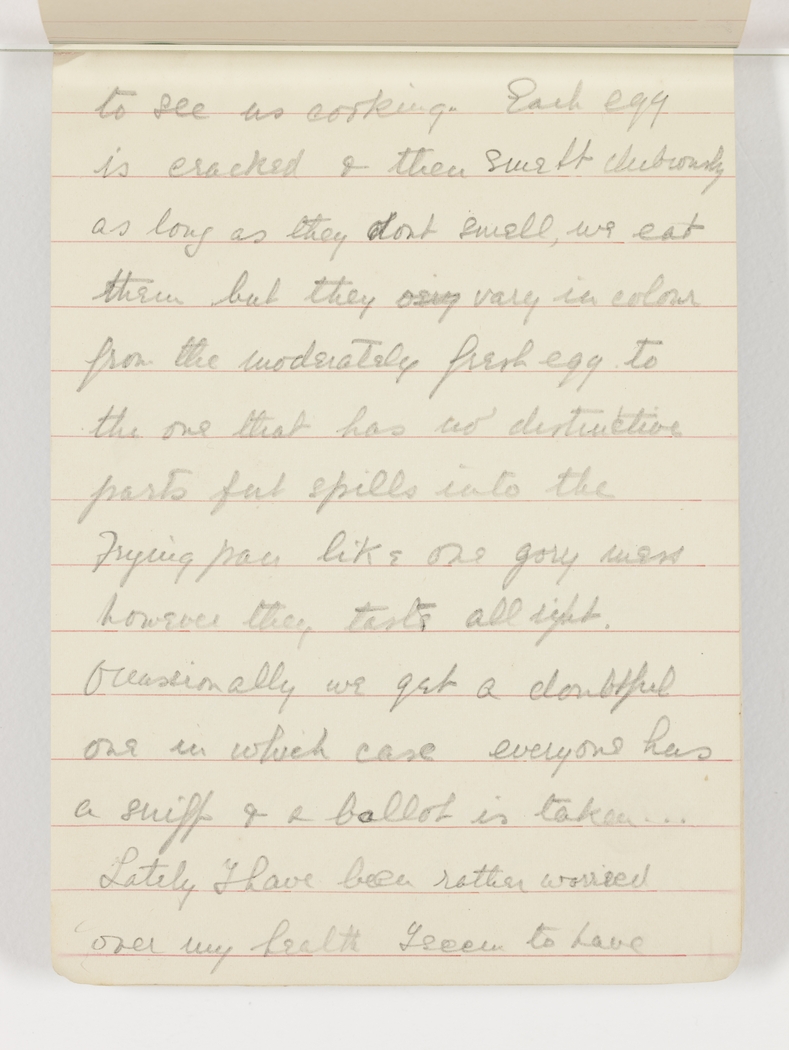 to see us cooking. Each egg
is cracked & then smelt dubiously
as long as they dont smell, we eat
them but they vary in colour
from the moderately fresh egg to
the one that has no distinctive
parts but spills into the
Frying pan like one gory mess
however they taste allright.
Occassionally we get a doubtful
one in which case everyone has
a sniff & a ballot is taken...
Lately I have been rather worried
over my health I seem to have